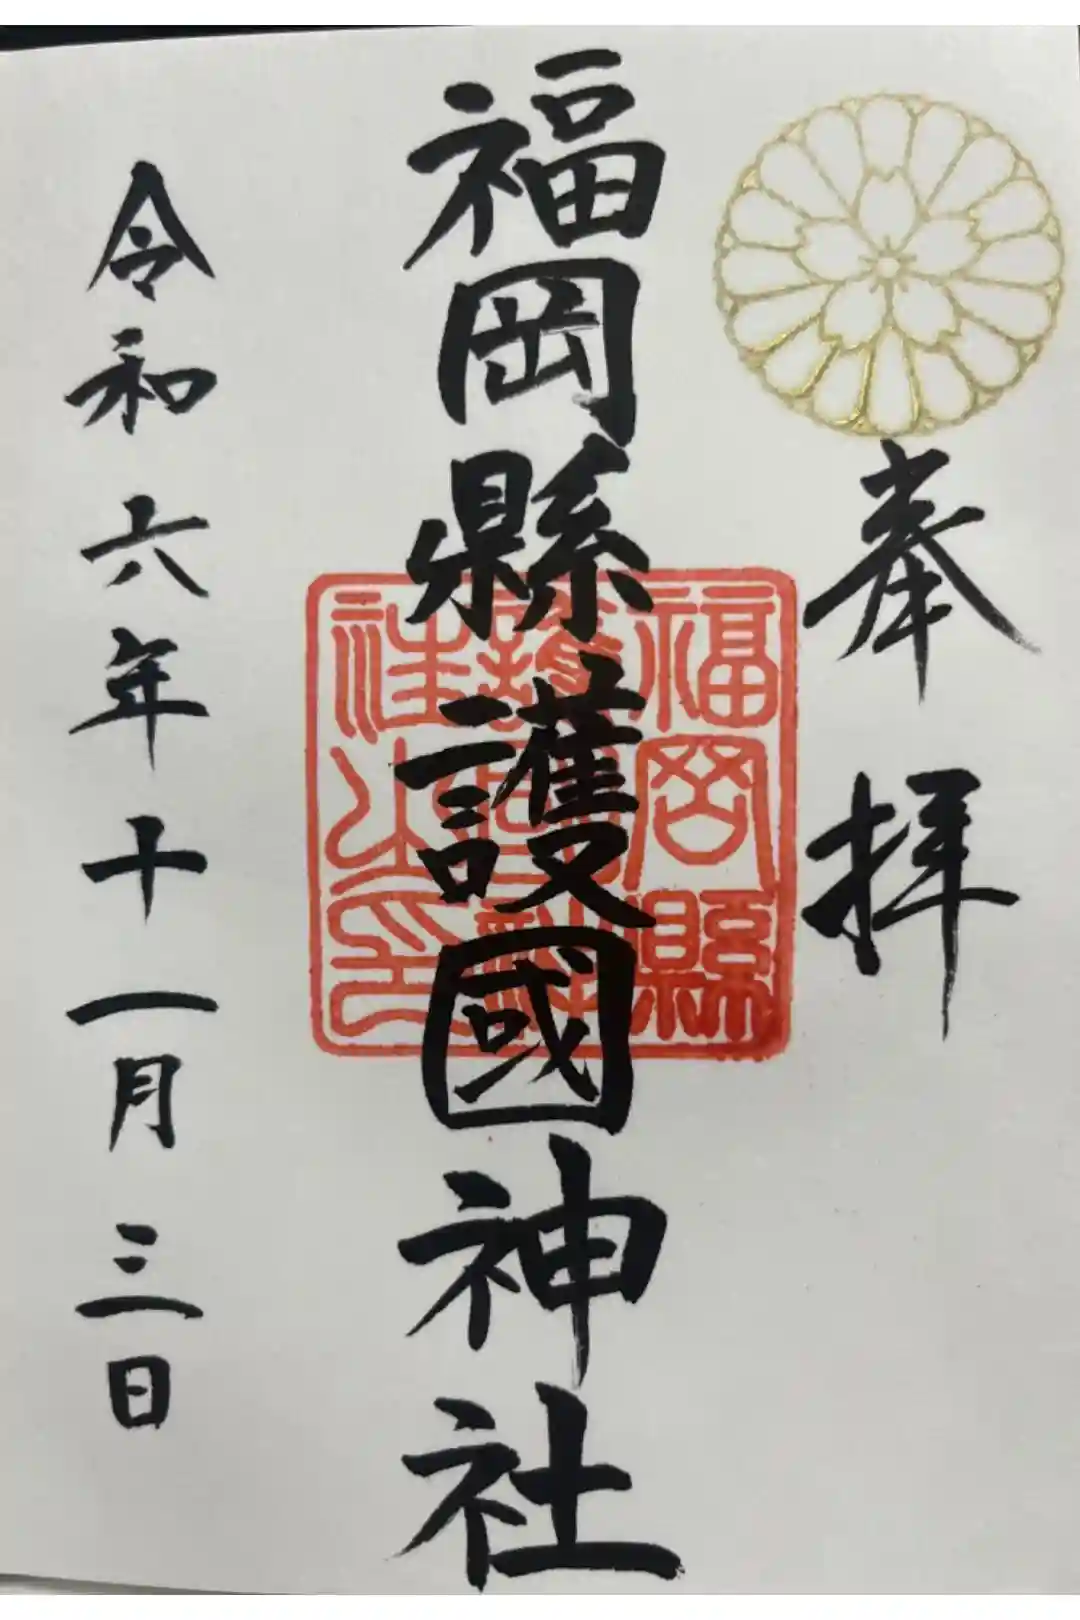 奉拝
福岡縣護國神社
福岡縣
護國神社
社之印
令和六年十一月三日